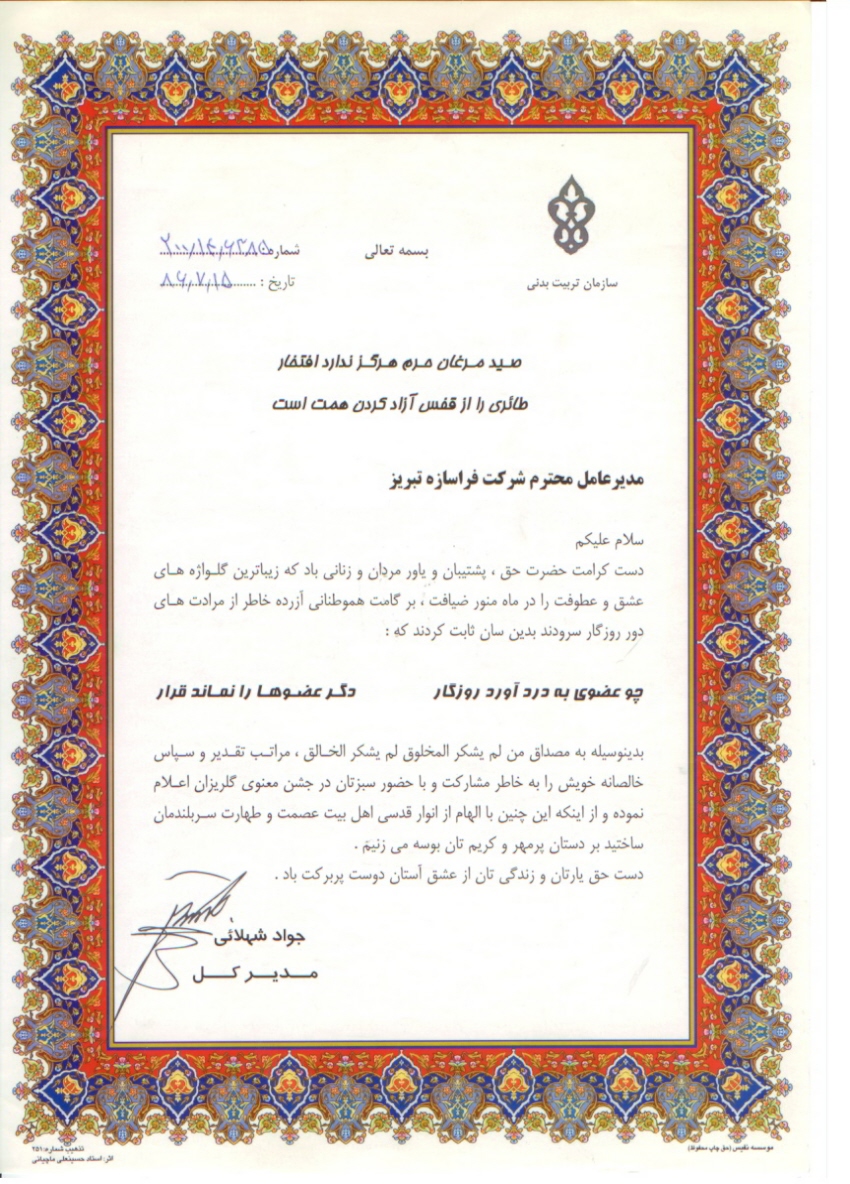 بسمه تعالی
سازمان تربیت بدنی
شماره: ۲۰۰/۱۴/۶۳۸۵
تاریخ : ۸۶/۷/۱۵
صید مرغان حرم هرگز ندارد افتخار
طائری را از قفس آزاد کردن همت است
مدیرعامل محترم شرکت فراسازه تبریز
سلام علیکم
دست کرامت حضرت حق ، پشتیبان و یاور مردان و زنانی باد که زیباترین گلواژه های
عشق و عطوفت را در ماه منور ضیافت ، بر گامت هموطنانی آزرده خاطر از مرادت های
دور روزگار سرودند بدین سان ثابت کردند که :
چو عضوی به درد آورد روزگار دگر عضوها را نماند قرار
بدینوسیله به مصداق من لم یشکر المخلوق لم یشکر الخالق ، مراتب تقدیر و سپاس
خالصانه خویش را به خاطر مشارکت و با حضور سبزتان در جشن معنوی گلریزان اعلام
نموده و از اینکه این چنین با الهام از انوار قدسی اهل بیت عصمت و طهارت سربلندمان
ساختید بر دستان پرمهر و کریم تان بوسه می زنیم .
دست حق یارتان و زندگی تان از عشق آستان دوست پربرکت باد .
جواد شهلائی
مدیر کل
موسسه نفیس (حق چاپ محفوظ)
تذهیب شماره: ۲۵۱
اثر: استاد حسینعلی ماچیانی